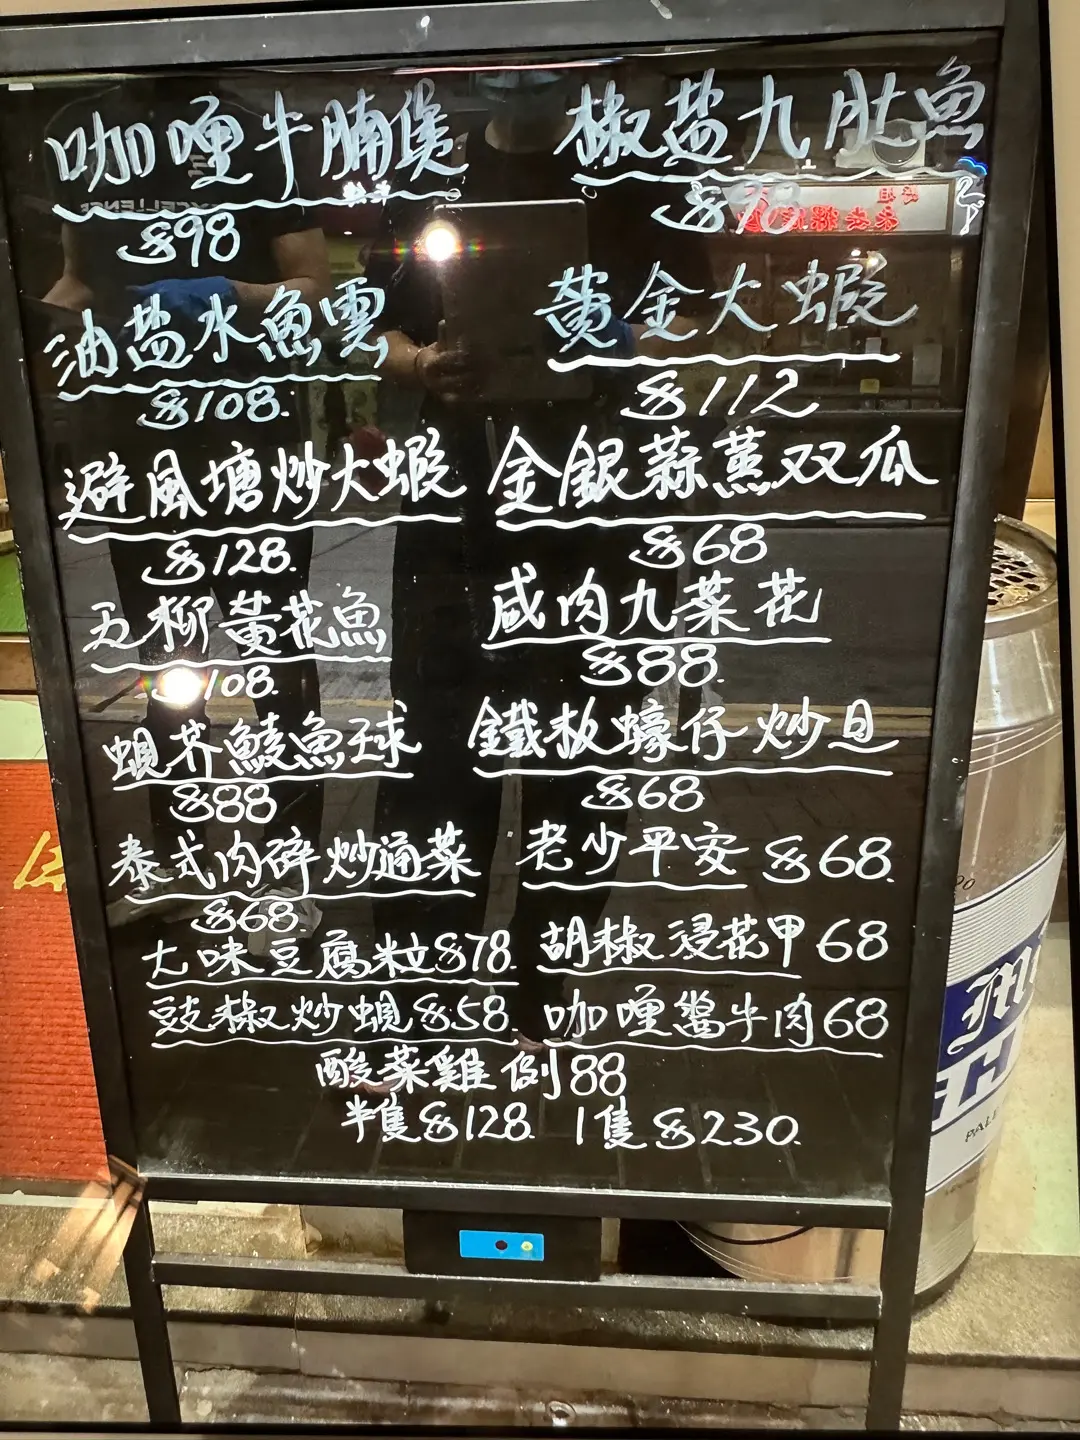 咖喱牛腩煲
$98
油盐水魚雲
$108.
避風塘炒大蝦
$128.
五柳黃花魚
108.
蜆芥鯪魚球
$88
泰式肉碎炒通菜
$68.
七味豆腐粒$78.
豉椒炒蜆$58.
椒盐九肚魚
$98
黃金大蝦
$112
金銀蒜蒸双瓜
$68
咸肉九菜花
$88.
鐵板蠔仔炒旦
$68
老少平安 $68.
胡椒浸花甲68
咖喱醬牛肉68
酸菜雞 例88
半隻$128. 1隻$230.